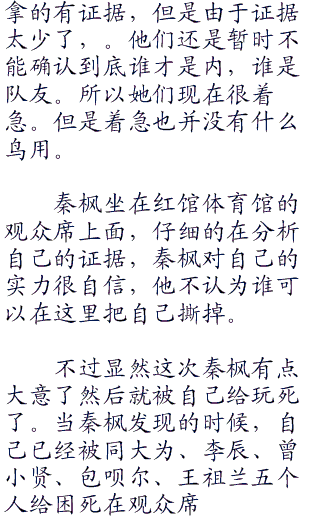 拿的有证据，但是由于证据
太少了，。他们还是暂时不
能确认到底谁才是内，谁是
队友。所以她们现在很着
急。但是着急也并没有什么
鸟用。
秦枫坐在红馆体育馆的
观众席上面，仔细的在分析
自己的证据，秦枫对自己的
实力很自信，他不认为谁可
以在这里把自己撕掉。
不过显然这次秦枫有点
大意了然后就被自己给玩死
了。当秦枫发现的时候，自
己已经被同大为、李辰、曾
小贤、包呗尔、王祖兰五个
人给困死在观众席